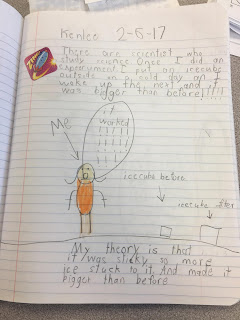 Kenlee 2-6-17
There are scientist who
study science Once I did an
experament I put an icecube
outside on a cold day an I
woke up the next and it
was bigger than before!!!!
it
worked
Me
icecube before
icecube after
My theory is that
it was sticky so more
ice stuck to it. And made it
bigger than before